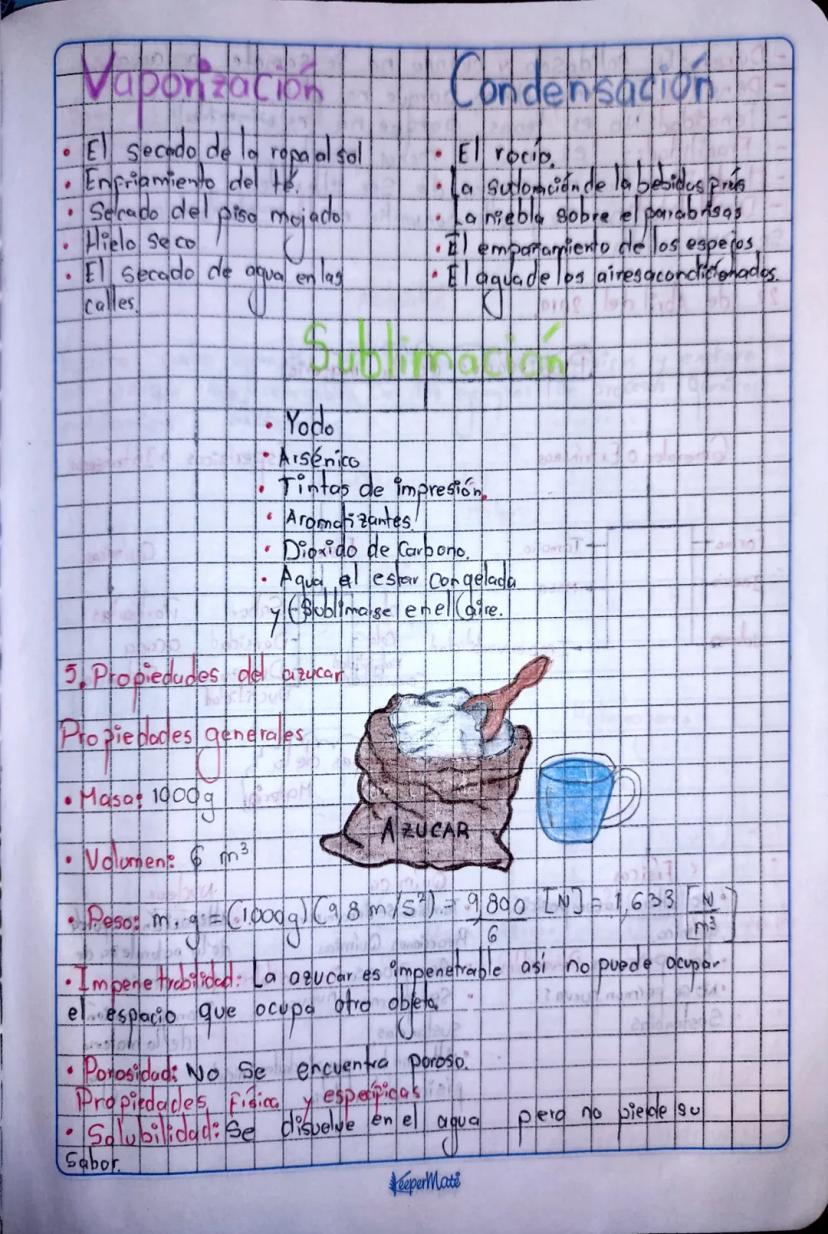 Vaporización
• El secado de la ropa al sol
• Enfriamiento del té.
• Secado del piso mojado
• Hielo seco
• El secado de agua en las
calles.
Condensación
• El rocío.
• La sudoración de la bebidas
• La niebla sobre el parabrisas
• El empañamiento de los espejos
• El agua de los aires acondicionados
Sublimación
• Yodo
• Arsénico
• Tintas de impresión.
• Aromatizantes
• Dioxido de Carbono.
• Agua al estar congelada
y sublimarse en el aire.
5. Propiedades del azucar
Propiedades generales
AZUCAR
• Masa: 1000g
• Volumen: 6 m³
• Peso: m. g = (1000g)(9,8 m/s²) = 9,800/6 [N] = 1,633 [N/m³]
• Impenetrabilidad: La azucar es impenetrable asi no puede ocupar
el espacio que ocupa otro objeto
• Porosidad: No se encuentra poroso.
Propiedades física y espeíficas
• Solubilidad: Se disuelve en el agua pero no pierde su
sabor.
KeeperMate